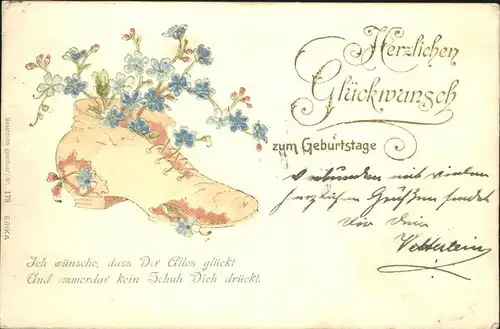 Herzlichen
Glückwunsch
zum Geburtstage
Verbunden mit vielen
herzlichen Grüßen sendet
dir dein
Vetterlein
Ich wünsche, dass Dir Alles glückt
Und immerdar kein Schuh Dich drückt.
Gesetzlich geschützt. Nr. 178 ERIKA